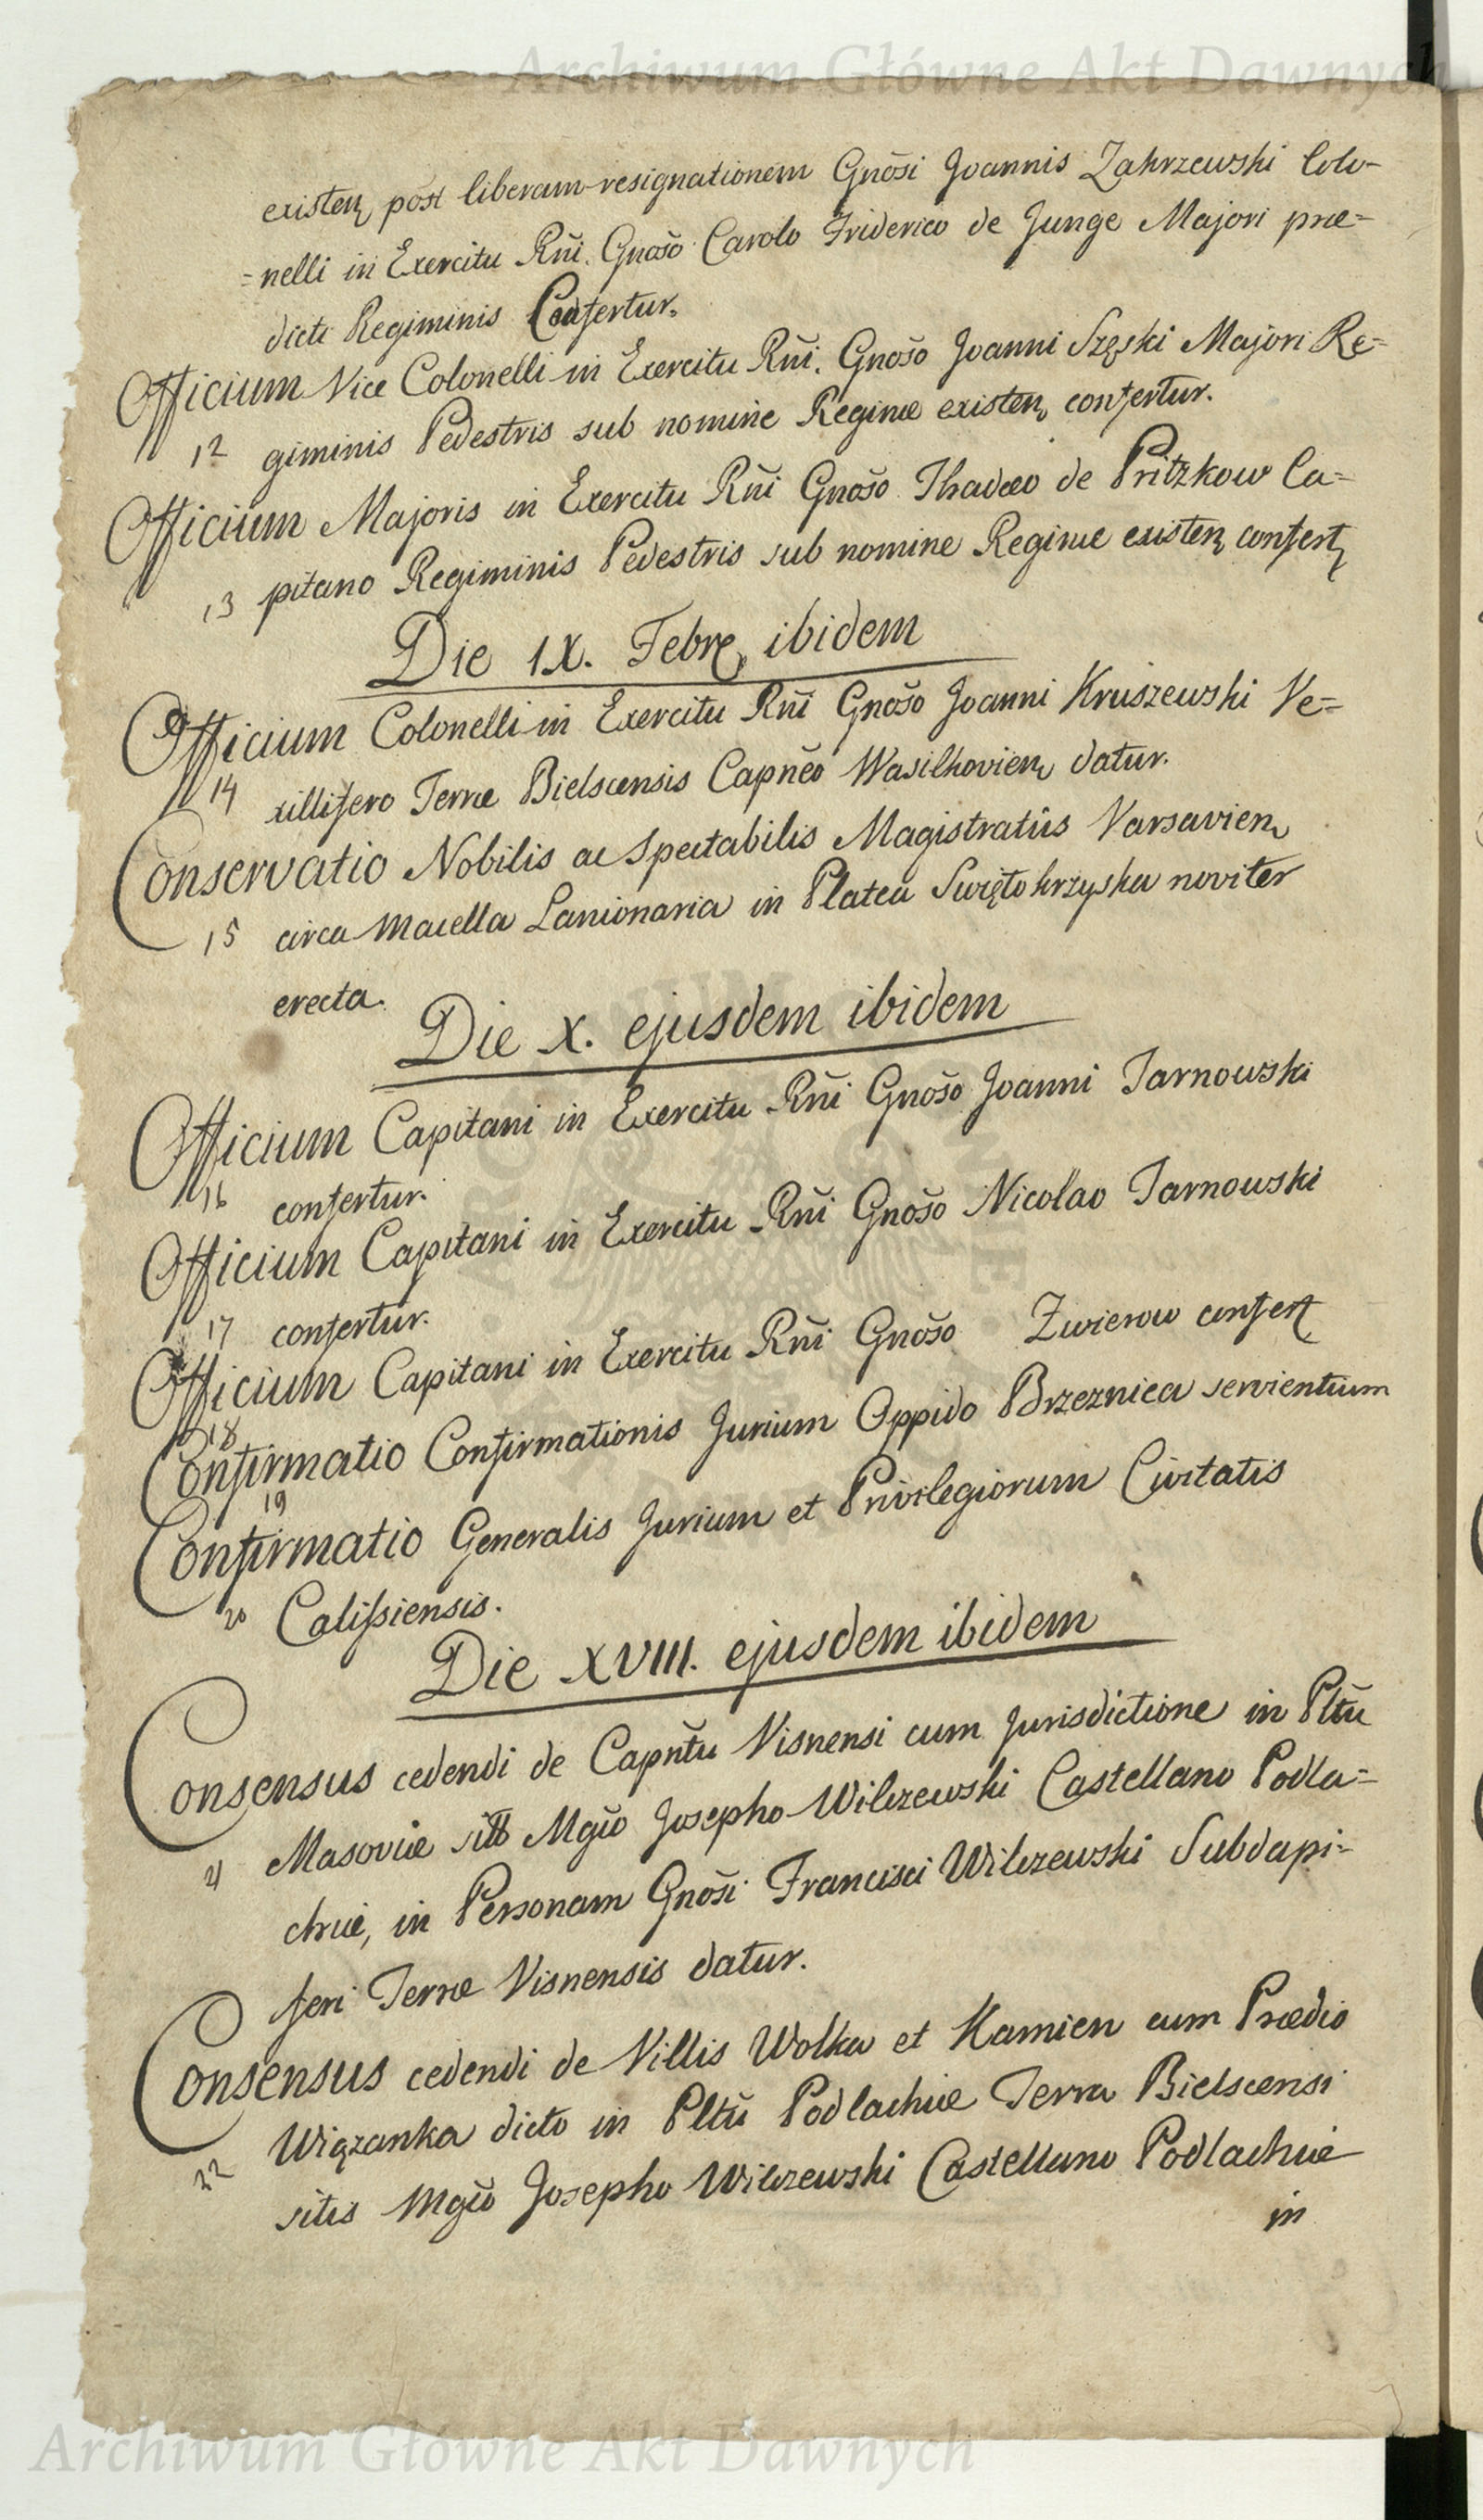 Archiwum Główne Akt Dawnych
existen. post liberam resignationem Gnosi Joannis Zakrzewski Colo-
=nelli in Exercitu Rni. Gnoso Carolo Friderico de Junge Majori præ=
dicti Regiminis Confertur.
Officium Vice Colonelli in Exercitu Rni. Gnoso Joanni Szęski Majori Re=
12 giminis Pedestris sub nomine Reginæ existen, confertur.
Officium Majoris in Exercitu Rni Gnoso Thadæo de Pritzkow Ca=
13 pitano Regiminis Pedestris sub nomine Reginæ existen confert
Die IX. Febre, ibidem
Officium Colonelli in Exercitu Rni Gnoso Joanni Kruszewski Ve=
14 xillifero Terræ Bielscensis Capneo Wasilkovien, datur.
Conservatio Nobilis ac Spectabilis Magistratûs Varsavien,
15 circa Macella Lanionaria in Platea Swiętokrzyska noviter
erecta.
Die X. ejusdem ibidem
Officium Capitani in Exercitu Rni Gnoso Joanni Tarnowski
16 confertur.
Officium Capitani in Exercitu Rni Gnoso Nicolao Tarnowski
17 confertur.
Officium Capitani in Exercitu Rni Gnoso Zwierow confert
18
Confirmatio Confirmationis Jurium Oppido Brzeznica servientium
19
Confirmatio Generalis Jurium et Privilegiorum Civitatis
20 Calissiensis.
Die XVIII. ejusdem ibidem
Consensus cedendi de Capntu Visnensi cum Jurisdictione in Pltu
21 Masoviæ Mgco Josepho Wilczewski Castellano Podla=
chiæ, in Personam Gnosi Francisci Wilczewski Subdapi=
feri Terræ Visnensis datur.
Consensus cedendi de Villis Wolka et Kamien cum Prædio
22 Wiązanka dicto in Pltu Podlachiæ Terra Bielscensi
sitis Mgco Josepho Wilczewski Castellano Podlachiæ
in
Archiwum Główne Akt Dawnych